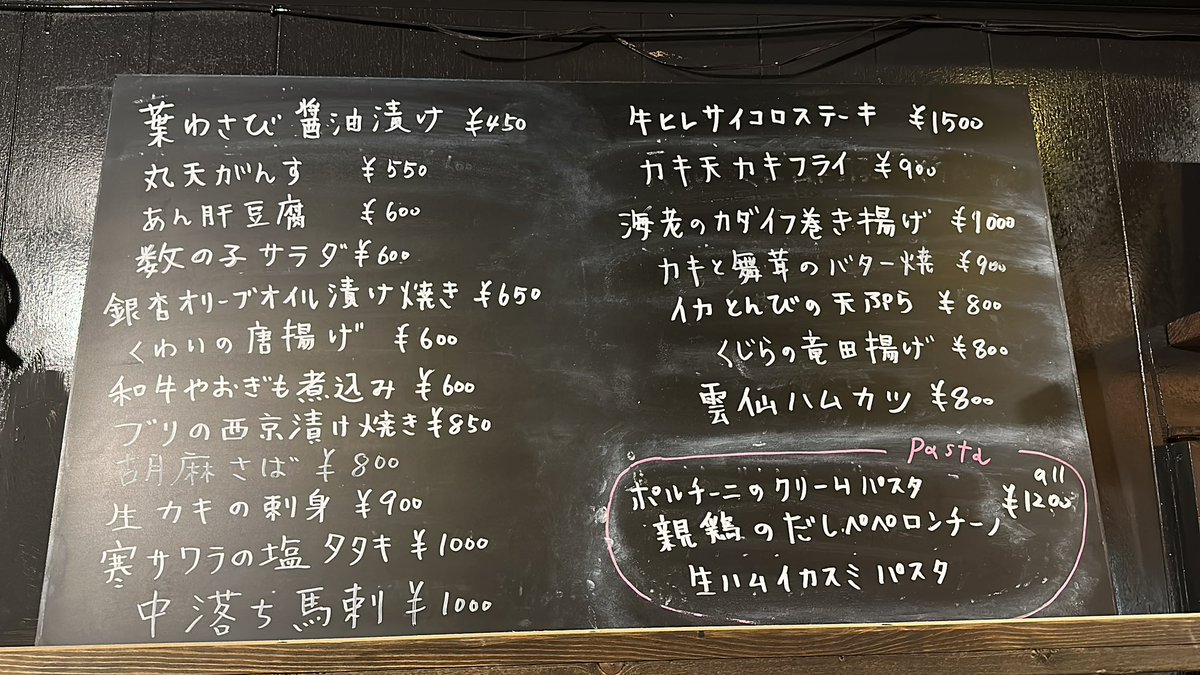 葉わさび醤油漬け ¥450
丸天がんす ¥550
あん肝豆腐 ¥600
数の子サラダ ¥600
銀杏オリーブオイル漬け焼き ¥650
くわいの唐揚げ ¥600
和牛やおぎも煮込み ¥600
ブリの西京漬け焼き ¥850
胡月麻さば ¥800
生カキの刺身 ¥900
寒サワラの塩タタキ ¥1000
中落ち馬刺 ¥1000
牛ヒレサイコロステーキ ¥1500
カキ天カキフライ ¥900
海老のカダイフ巻き揚げ ¥1000
カキと舞茸のバター焼 ¥900
イカとんびの天ぷら ¥800
くじらの竜田揚げ ¥800
雲仙ハムカツ ¥800
Pasta
all ¥1200
ポルチーニのクリームパスタ
親鶏のだしペペロンチーノ
生ハムイカスミパスタ